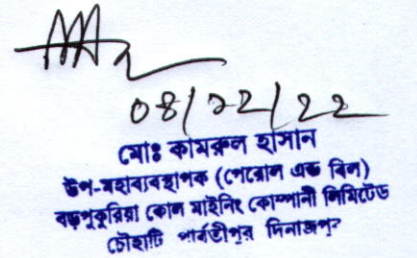 ০৪/১২/২২
মোঃ কামরুল হাসান
উপ-মহাব্যবস্থাপক (পেরোল এন্ড বিল)
বড়পুকুরিয়া কোল মাইনিং কোম্পানী লিমিটেড
চৌহাটি পার্বতীপুর দিনাজপুর